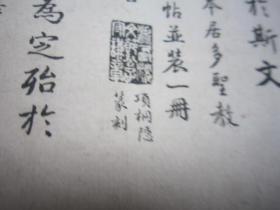 於斯文
本居多聖教
帖並装一冊
項桐隐
篆刻
為定殆於